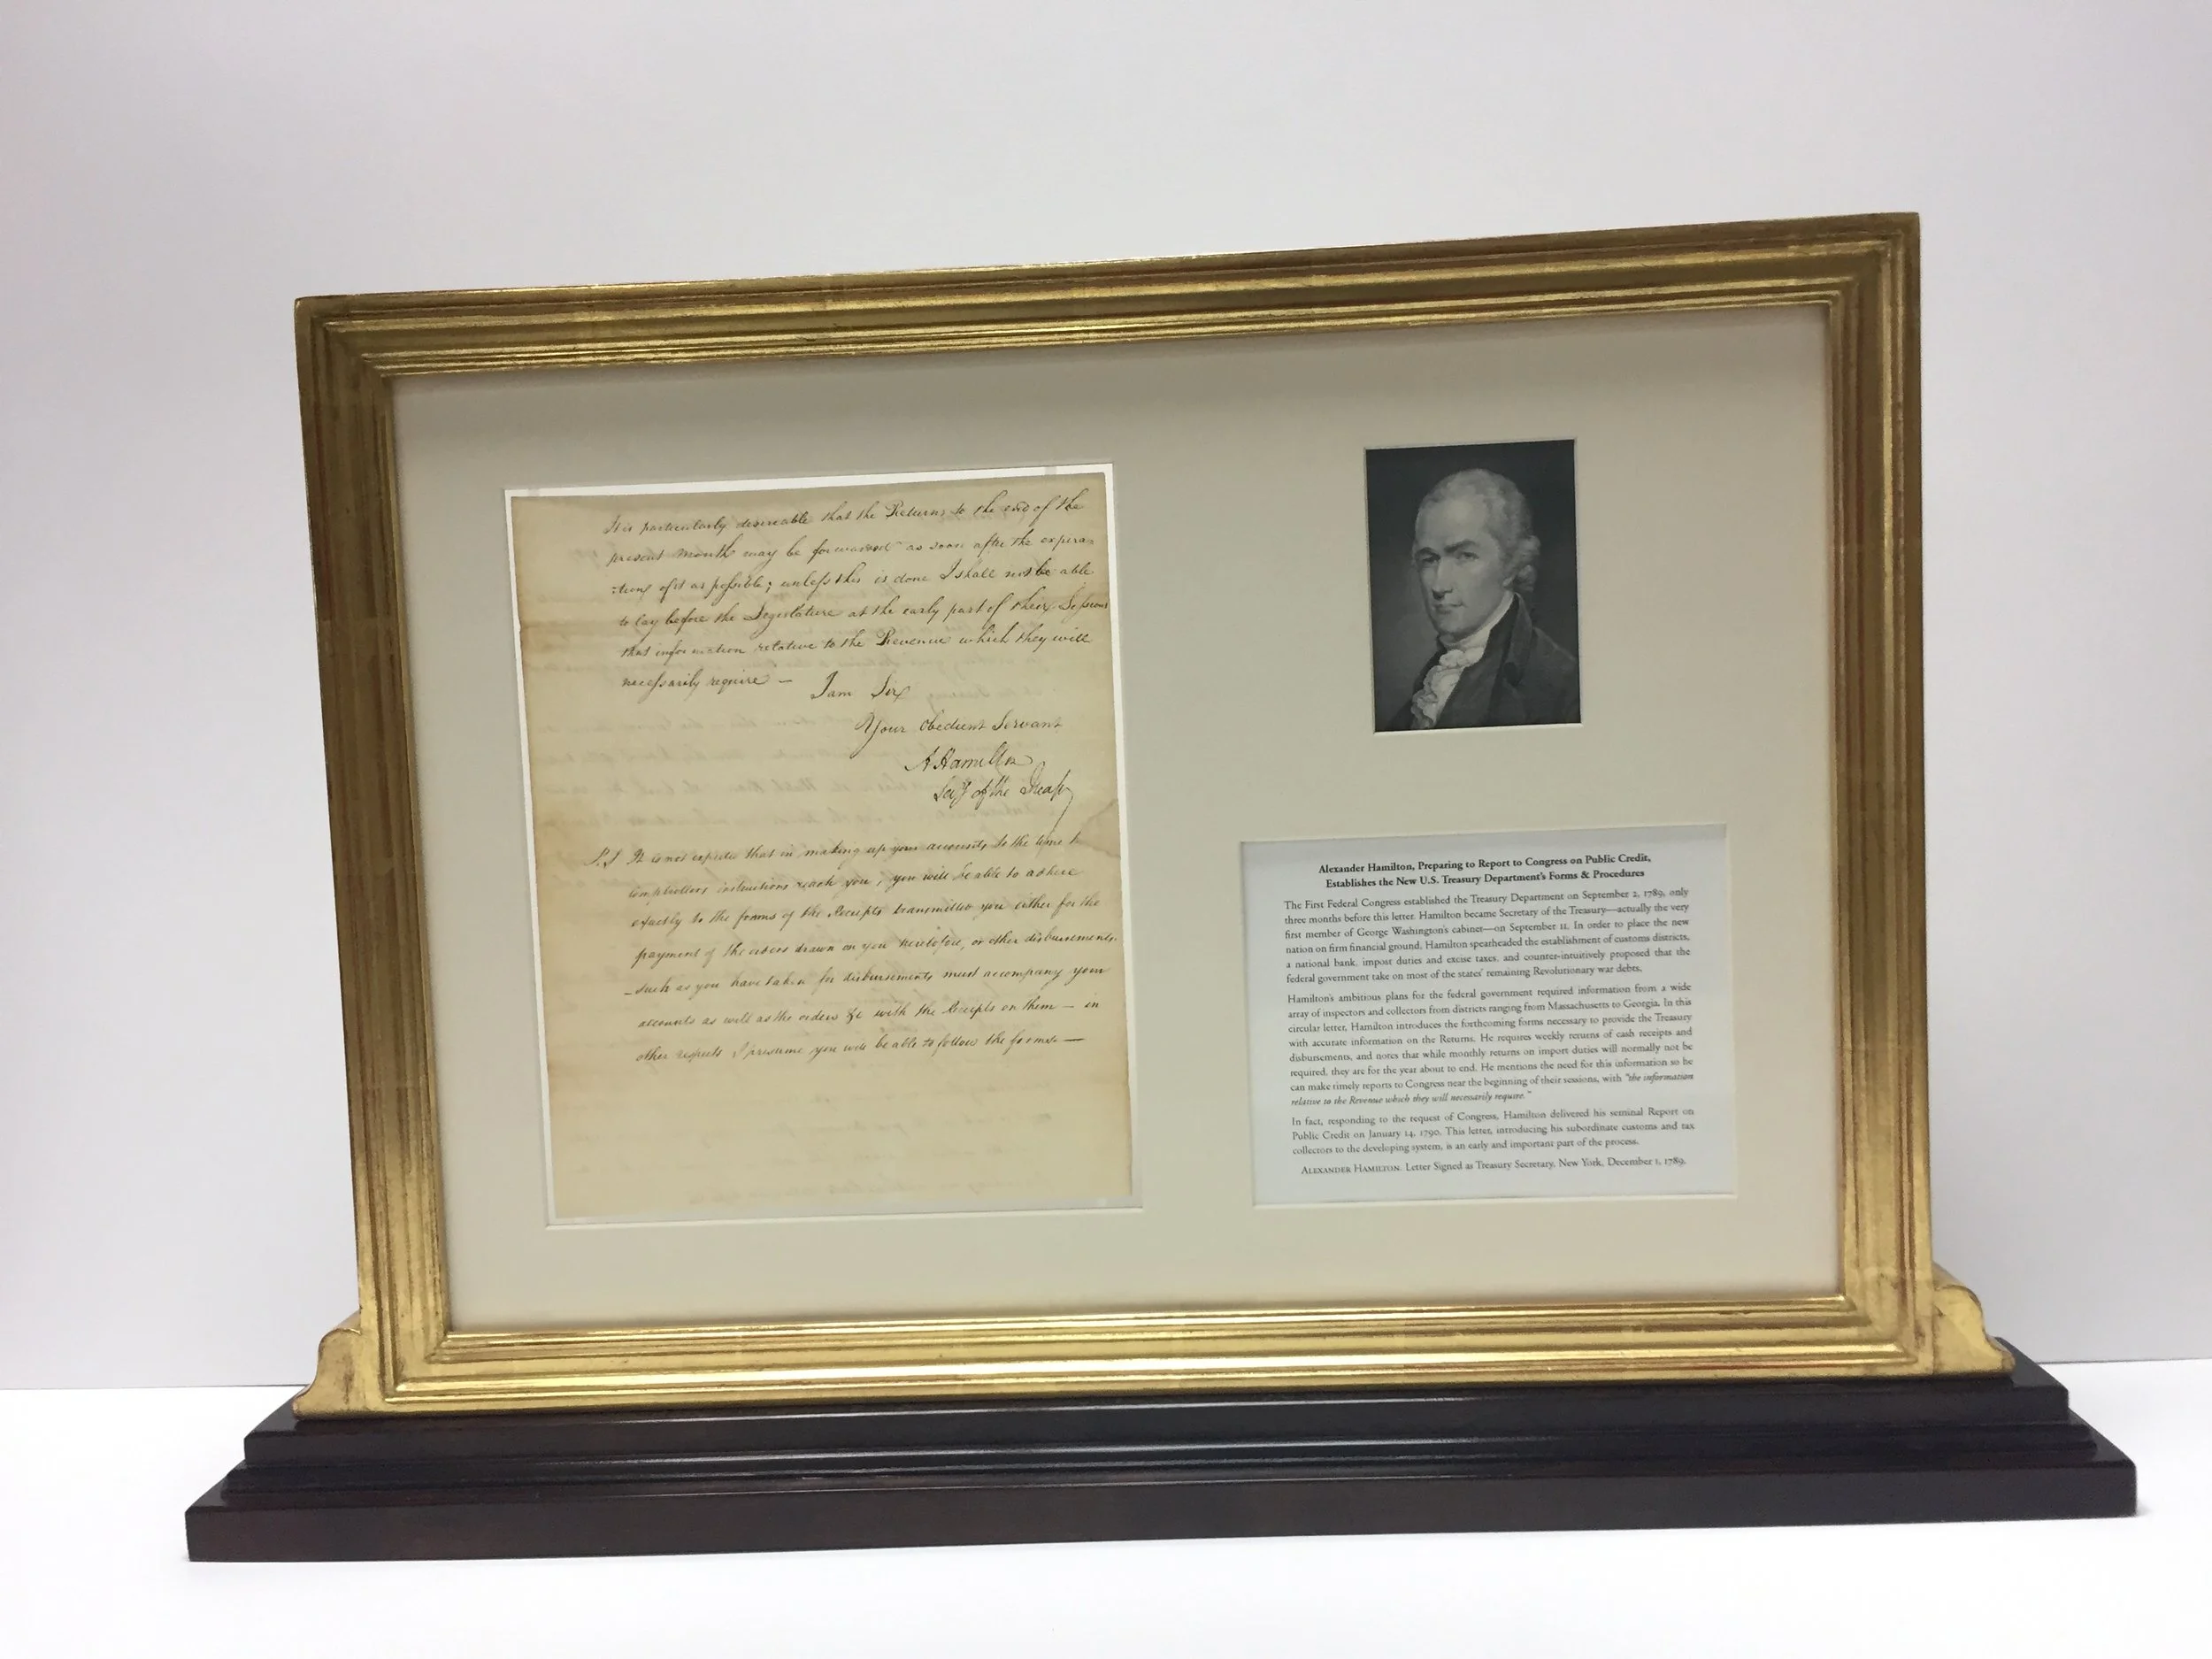 It is particularly desireable that the Returns to the end of the
present month may be forwarded as soon after the expira-
:tion of it as possible; unless this is done I shall not be able
to lay before the Legislature at the early part of their Session
that information relative to the Revenue which they will
necessarily require —
I am Sir
Your Obedient Servant
A Hamilton
Secy of the Treasy
P.S It is not expected that in making up your accounts to the time
comptrollers instructions reach you, you will be able to adhere
exactly to the forms of the Receipts transmitted you either for the
payment of the orders drawn on you heretofore, or other disbursements.
— such as you have taken for disbursements must accompany your
accounts as well as the orders &c with the Receipts on them — in
other respects I presume you will be able to follow the forms —
Alexander Hamilton, Preparing to Report to Congress on Public Credit,
Establishes the New U.S. Treasury Department's Forms & Procedures
The First Federal Congress established the Treasury Department on September 2, 1789, only
three months before this letter. Hamilton became Secretary of the Treasury—actually the very
first member of George Washington's cabinet—on September 11. In order to place the new
nation on firm financial ground, Hamilton spearheaded the establishment of customs districts,
a national bank, impost duties and excise taxes, and counter-intuitively proposed that the
federal government take on most of the states' remaining Revolutionary war debts.
Hamilton's ambitious plans for the federal government required information from a wide
array of inspectors and collectors from districts ranging from Massachusetts to Georgia. In this
circular letter, Hamilton introduces the forthcoming forms necessary to provide the Treasury
with accurate information on the Returns. He requires weekly returns of cash receipts and
disbursements, and notes that while monthly returns on import duties will normally not be
required, they are for the year about to end. He mentions the need for this information so he
can make timely reports to Congress near the beginning of their sessions, with "the information
relative to the Revenue which they will necessarily require."
In fact, responding to the request of Congress, Hamilton delivered his seminal Report on
Public Credit on January 14, 1790. This letter, introducing his subordinate customs and tax
collectors to the developing system, is an early and important part of the process.
ALEXANDER HAMILTON. Letter Signed as Treasury Secretary, New York, December 1, 1789.